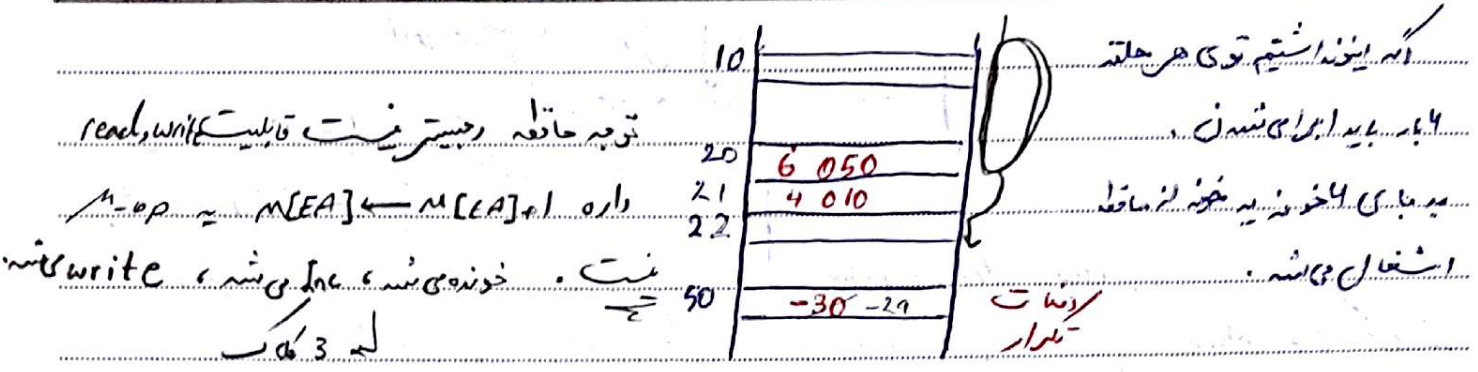 اگه اینو نداشتیم توی هر حلقه
۴ بار باید اجرا می‌شدن.
به جای ۴ خونه یه خونه از حافظه
اشغال می‌شه.
10
20 6 050
21 4 010
22
50 -30 -29
دفعات
تکرار
توجه حافظه رجیستر نیست قابلیت read, write
داره M[EA] ← M[EA]+1 یه μ-op
نیست. خونده می‌شه، Inc می‌شه، write می‌شه.
3 کلاک